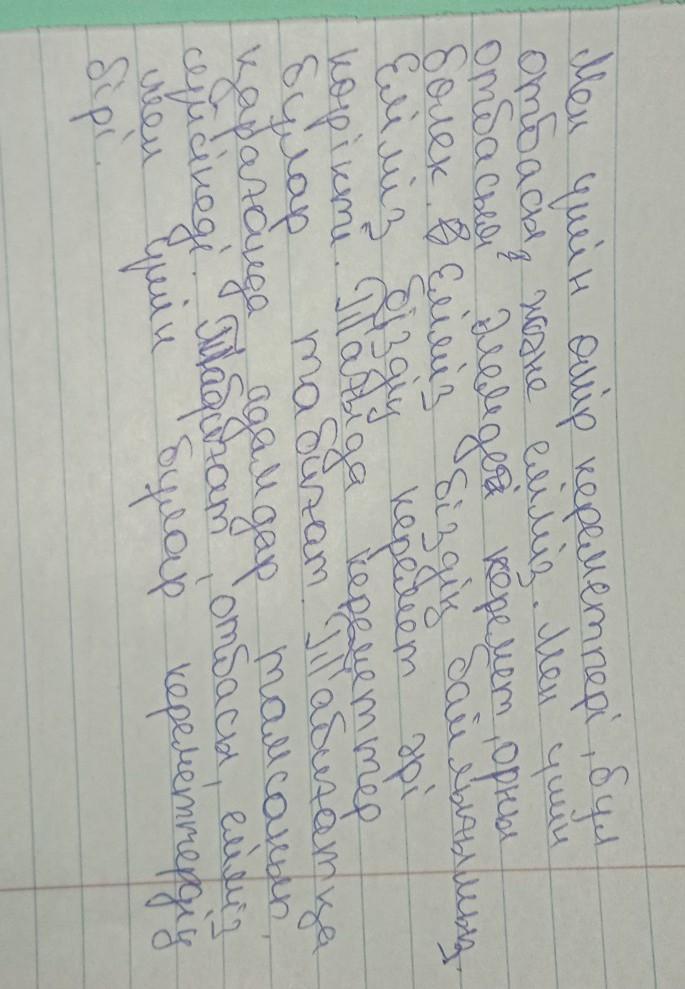 Мен үшін өмір кереметтері, бұл
отбасы, және еліміз. Мен үшін
отбасын әлемдегі керемет, орны
бөлек. Еліміз біздің байлығымыз.
Еліміз біздің керемет әрі
көрікті. Тағыда кереметтер
бұлар табиғат. Табиғатқа
қарағанда адамдар тамсанып,
сүйсінеді. Табиғат, отбасы, еліміз
мен үшін бұлар кереметтердің
бірі.